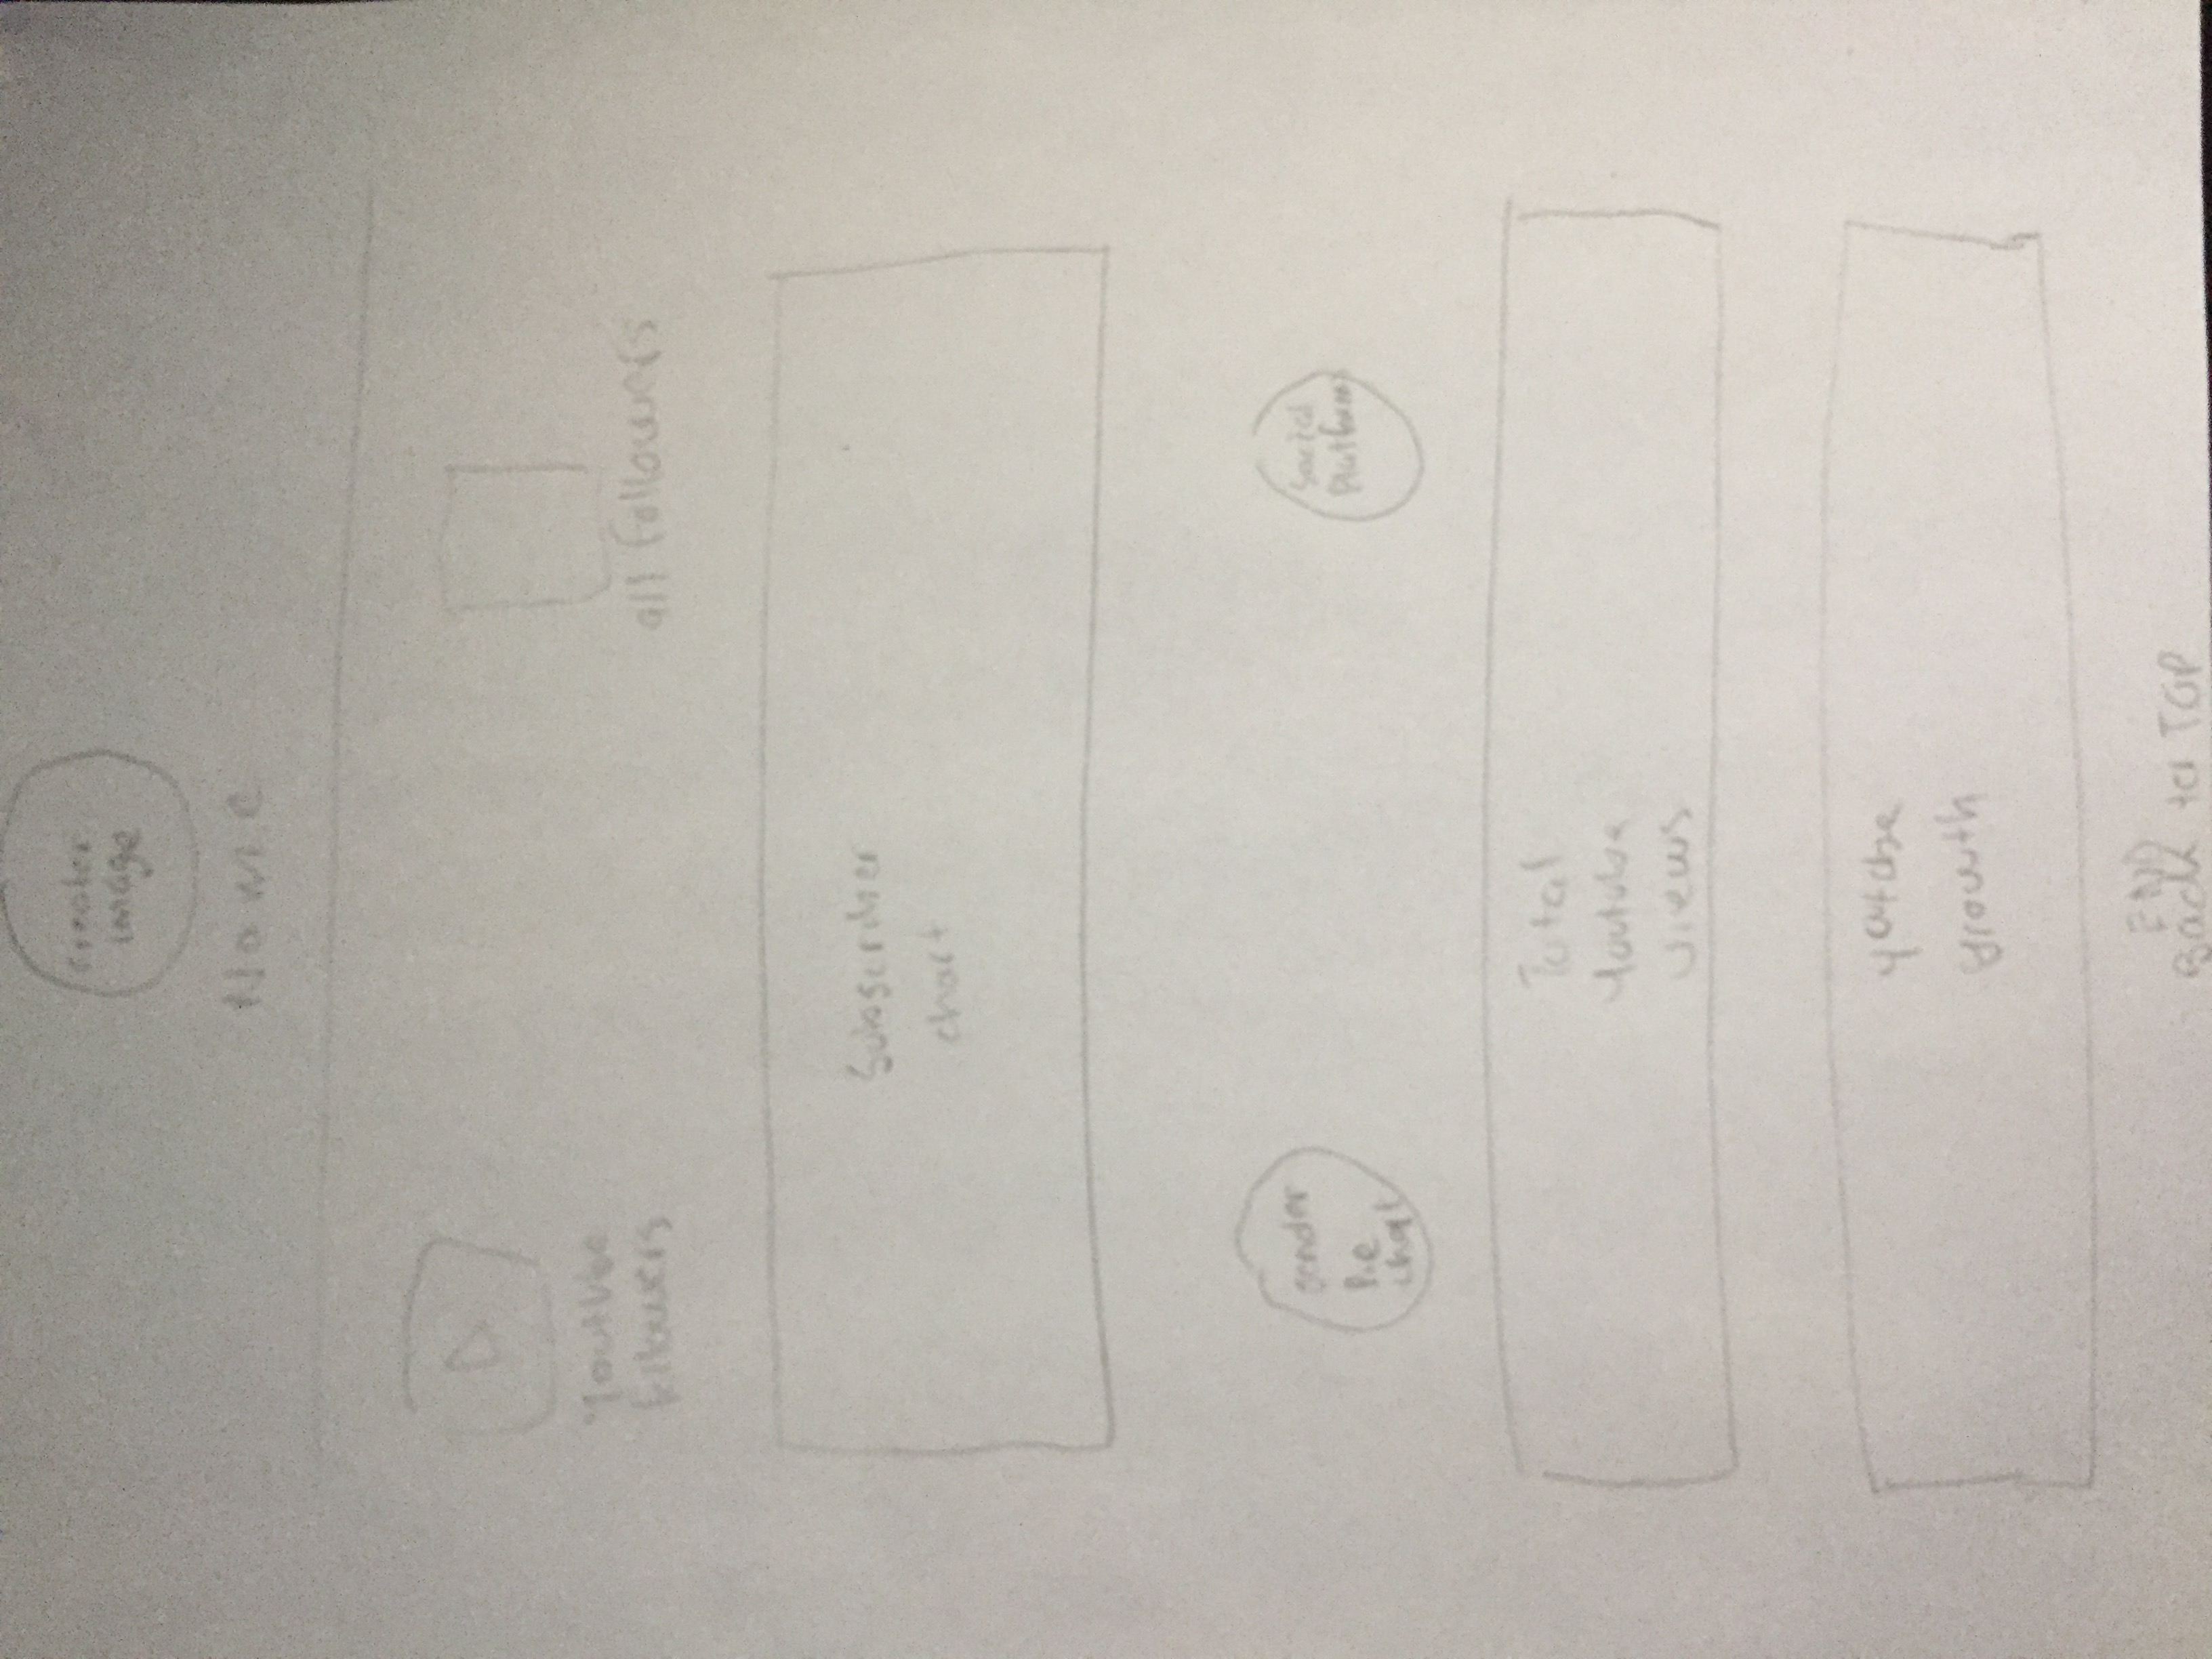 creater
image
Name
Youtube
followers
all followers
Subscriber
chart
gender
Pie
chart
Social
Platform
Total
Youtube
views
yotube
growth
END
Back to TOP